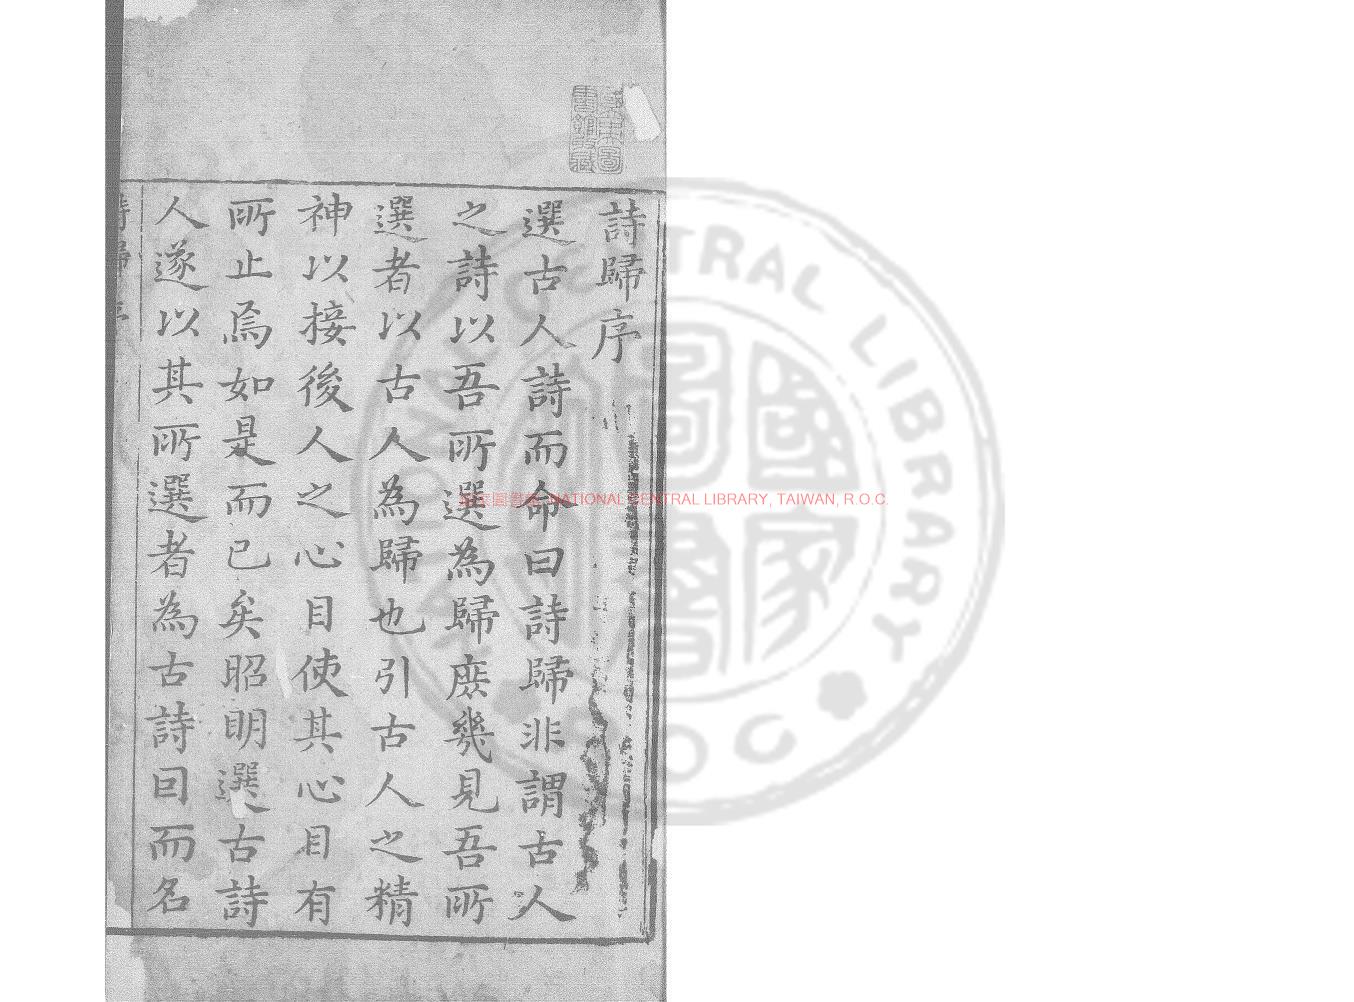 詩歸序
選古人詩而命曰詩歸非謂古人
之詩以吾所選為歸庶幾見吾所
選者以古人為歸也引古人之精
神以接後人之心目使其心目有
所止焉如是而已矣昭明選古詩
人遂以其所選者為古詩因而名
詩歸序
國家圖書館 NATIONAL CENTRAL LIBRARY, TAIWAN, R.O.C.
NATIONAL CENTRAL LIBRARY
R.O.C
國家圖書